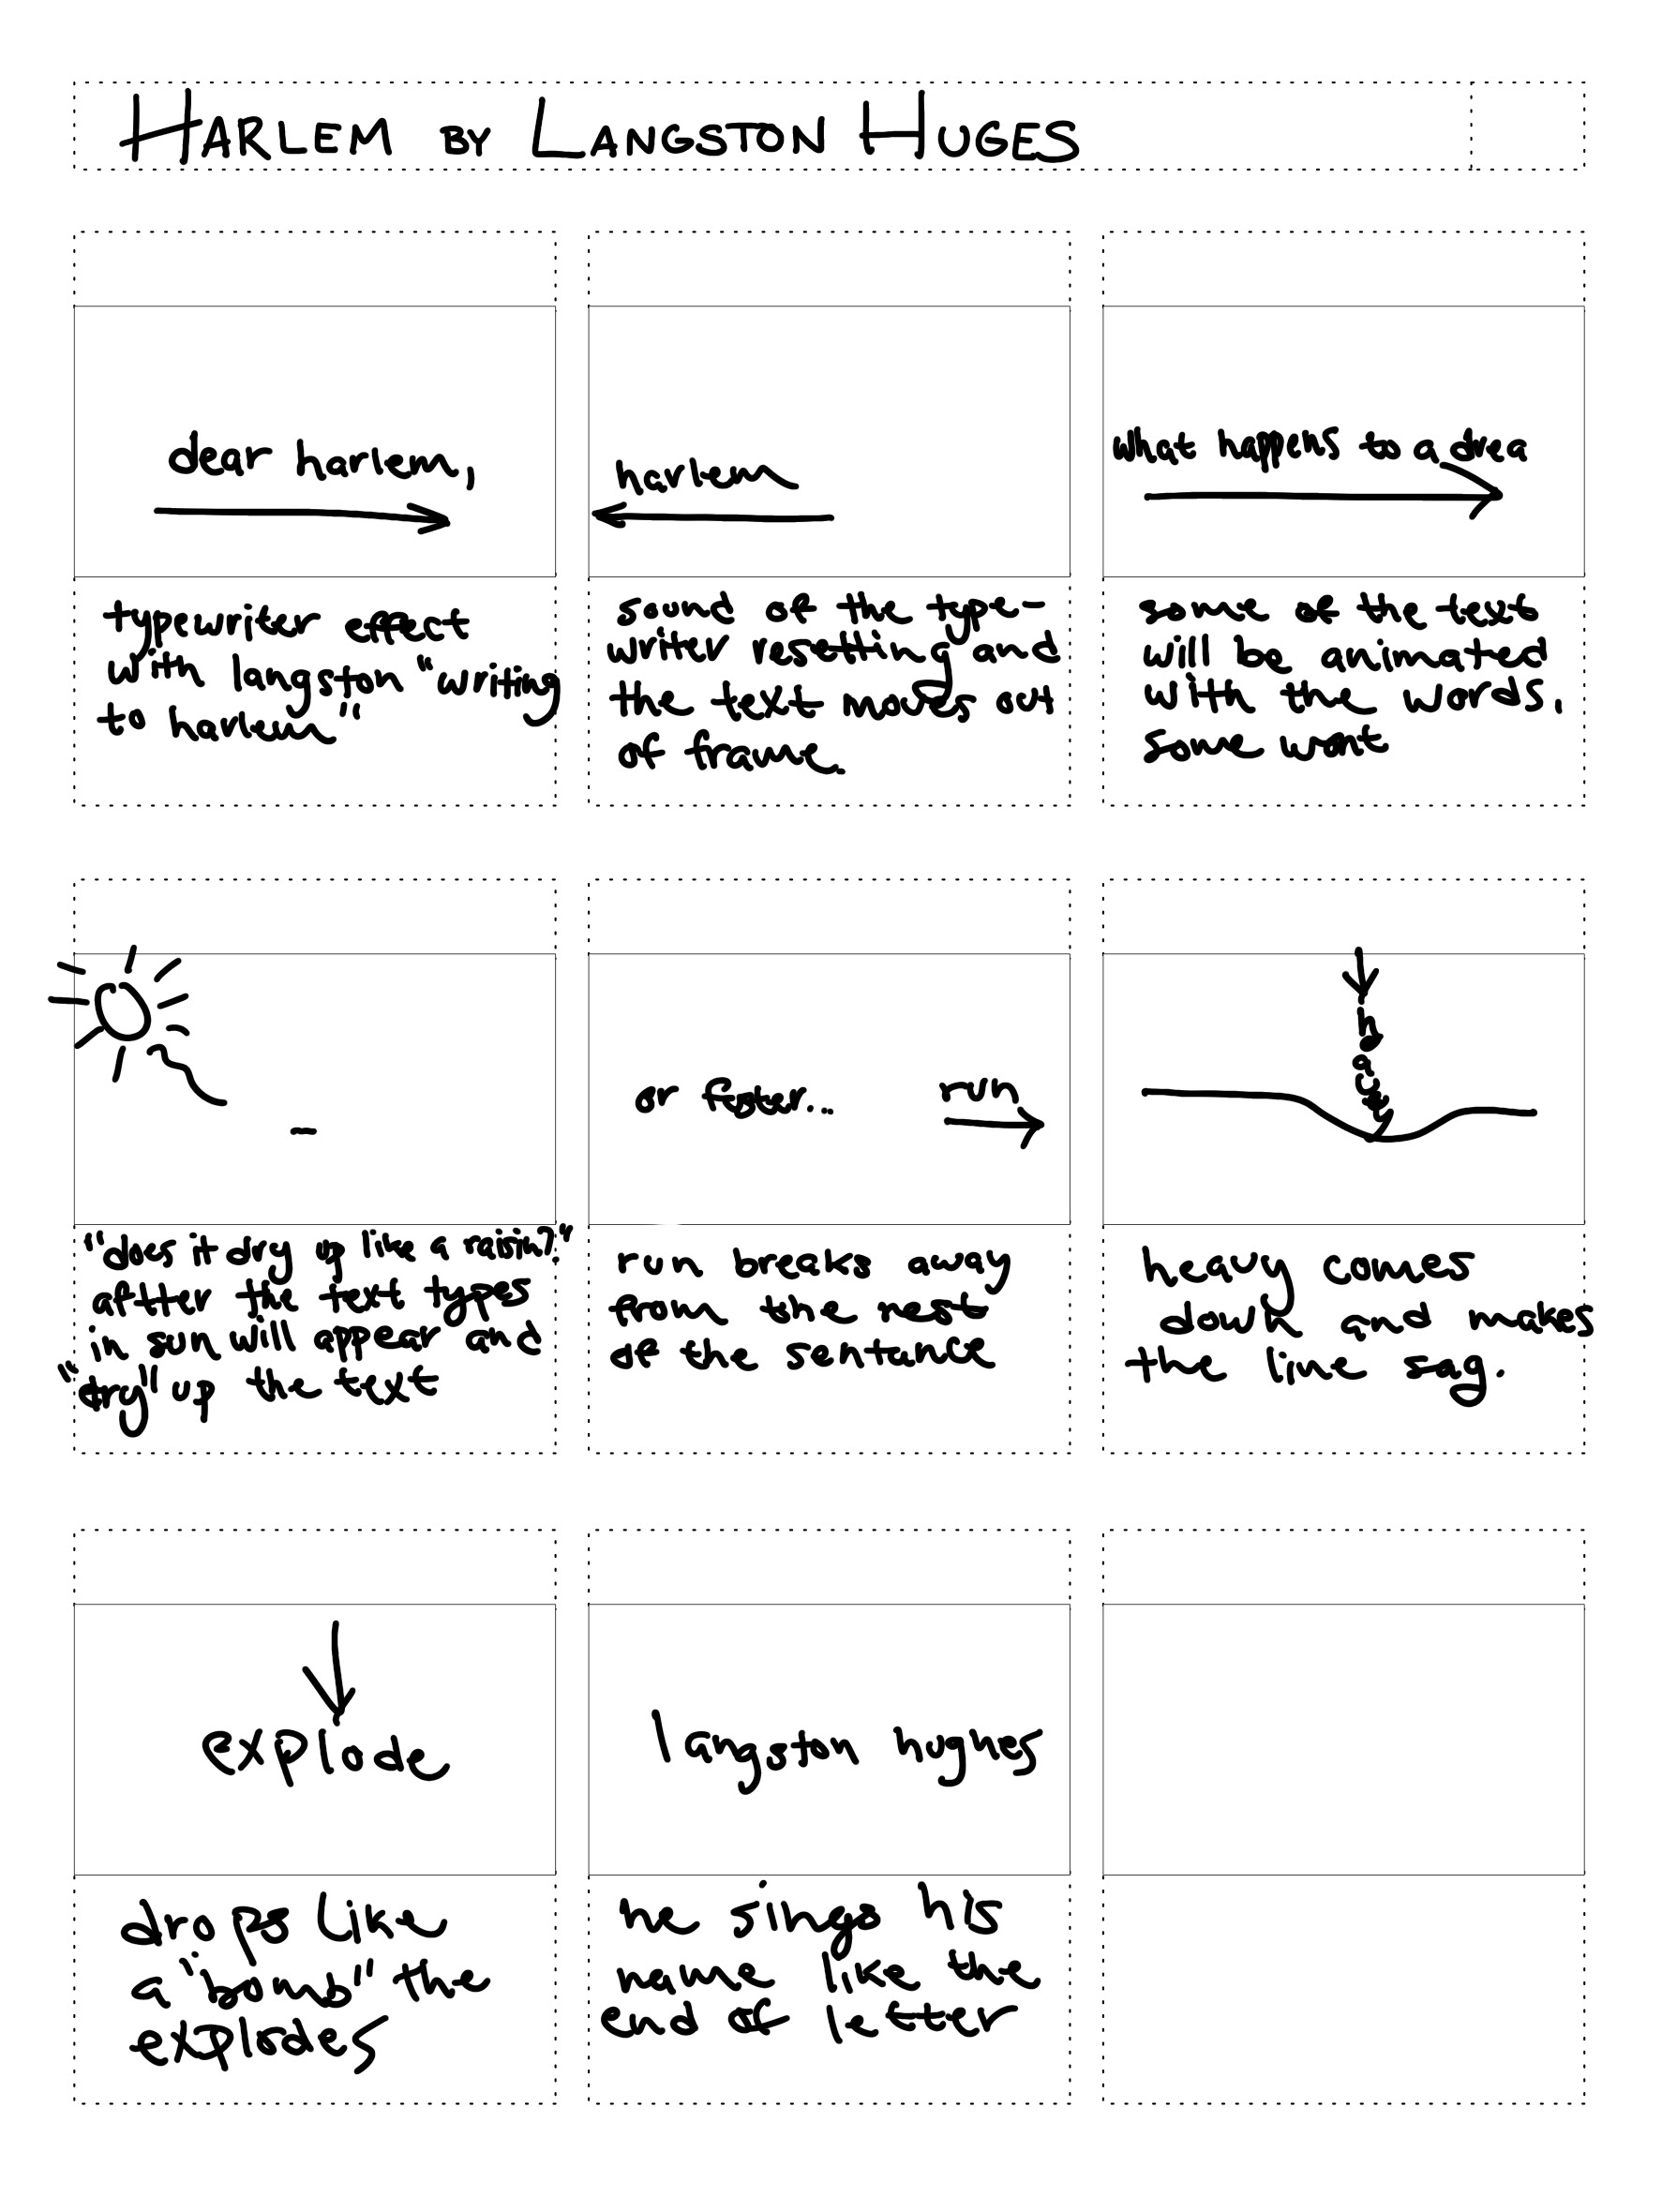 HARLEM BY LANGSTON HUGES
dear harlem,
typewriter effect
with langston "writing
to harlem"
harlem
sound of the type-
writer resetting and
the text moves out
of frame.
what happens to a drea
some of the text
will be animated
with the words.
some wont
"does it dry up like a raisin?"
aftter the text types
in sun will appear and
"dry" up the text
or fester...
run
run breaks away
from the rest
of the sentance
heavy
heavy comes
down and makes
the line sag.
explode
drops like
a "bomb" the
explodes
langston hughes
he sings his
name like the
end of letter